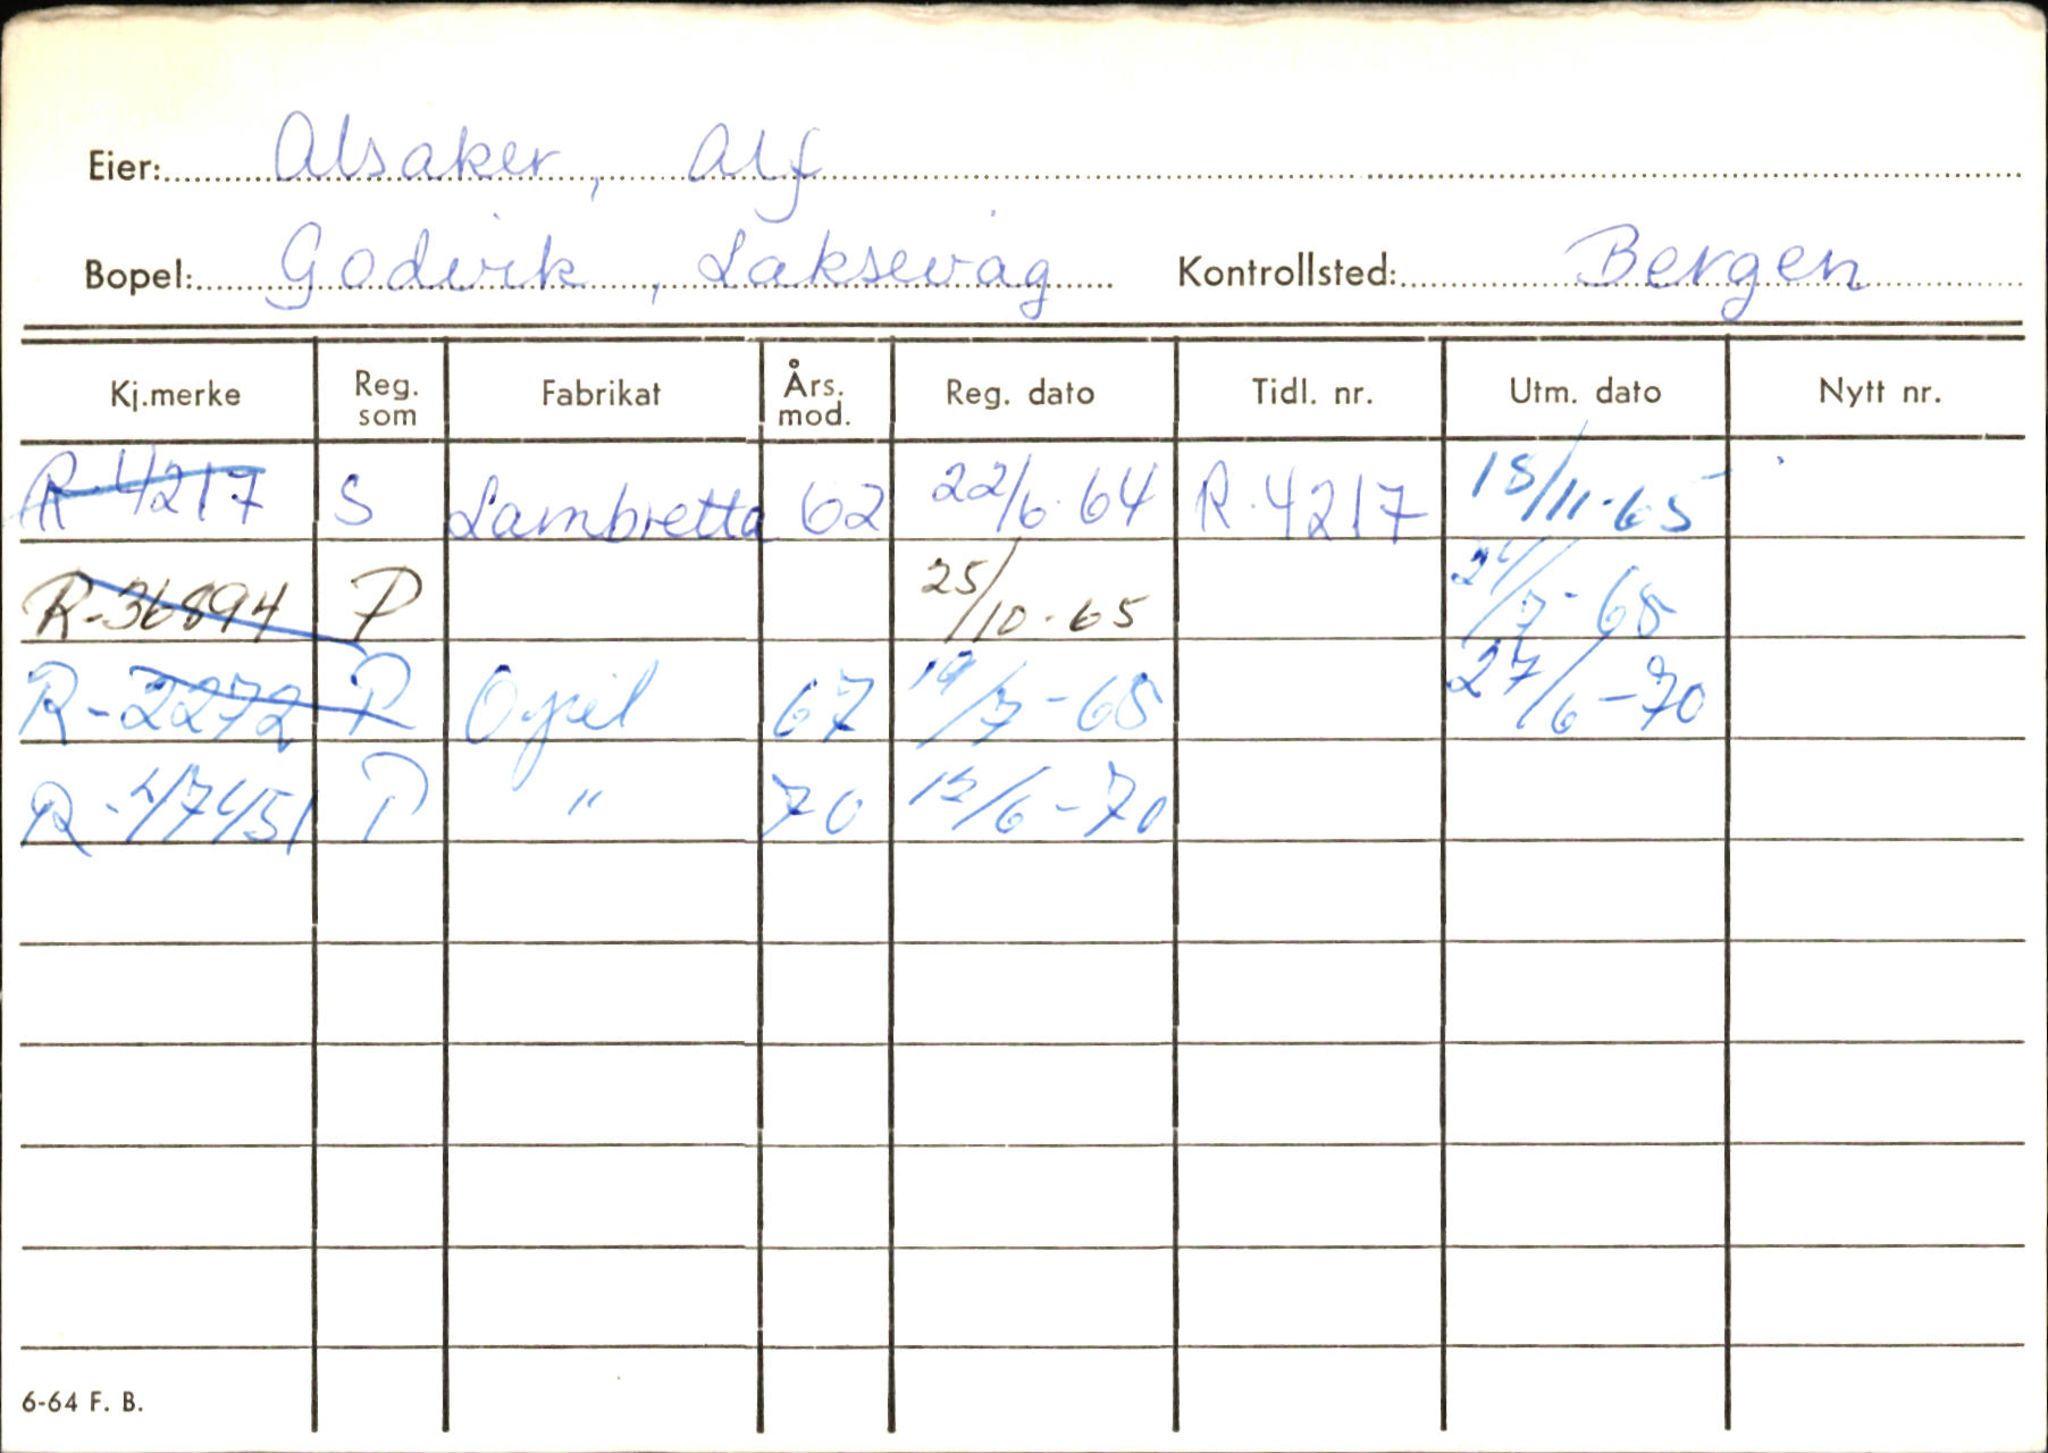 Eier: Alsaker, Alf
Bopel: Godvik, Laksevåg Kontrollsted: Bergen
Kj.merke Reg. som Fabrikat Års. mod. Reg. dato Tidl. nr. Utm. dato Nytt nr.
R-4217 S Lambretta 62 22/6-64 R-4217 15/11-65
R-36894 P 25/10-65 24/7-68
R-2272 P Opel 67 19/7-68 27/6-70
R-47451 P " 70 /6-70
6-64 F. B.